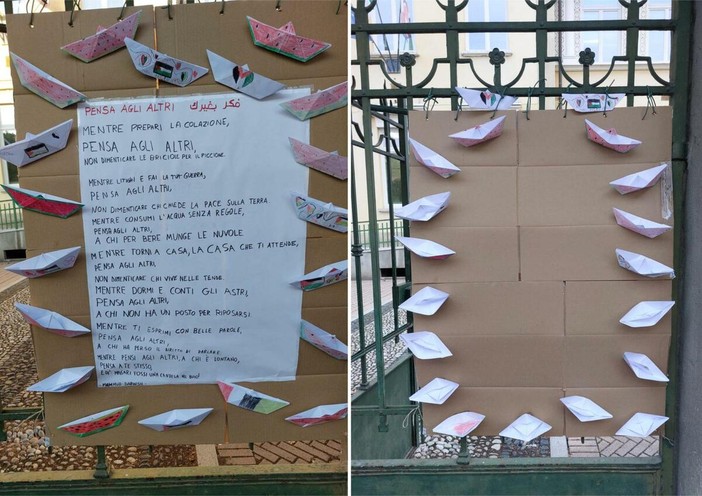 PENSA AGLI ALTRI فكر بغيرك
MENTRE PREPARI LA COLAZIONE,
PENSA AGLI ALTRI,
NON DIMENTICARE LE BRICIOLE PER LE PICCIONE.
MENTRE LITIGHI E FAI LA TUA GUERRA,
PENSA AGLI ALTRI,
NON DIMENTICARE CHI CHIEDE LA PACE SULLA TERRA.
MENTRE CONSUMI L'ACQUA SENZA REGOLE,
PENSA AGLI ALTRI,
A CHI PER BERE MUNGE LE NUVOLE
MENTRE TORNI A CASA, LA CASA CHE TI ATTENDE,
PENSA AGLI ALTRI
NON DIMENTICARE CHI VIVE NELLE TENDE.
MENTRE DORMI E CONTI GLI ASTRI,
PENSA AGLI ALTRI,
A CHI NON HA UN POSTO PER RIPOSARSI.
MENTRE TI ESPRIMI CON BELLE PAROLE,
PENSA AGLI ALTRI,
A CHI HA PERSO IL DIRITTO DI PARLARE.
MENTRE PENSI AGLI ALTRI, A CHI È LONTANO,
PENSA A TE STESSO,
E DI' MAGARI FOSSI UNA CANDELA NEL BUIO